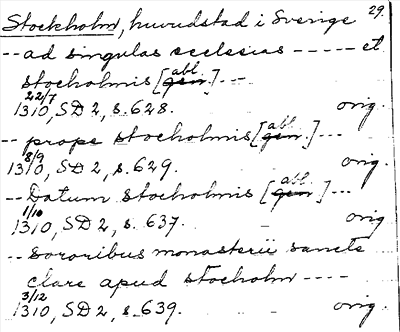 29.
Stockholm, huvudstad i Sverige
-- ad singulas ecclesias ----- et
stocholmis [gen. abl.] --
22/7
1310, SD 2, s. 628. orig.
-- prope stocholmis [gen. abl.] --
8/9
1310, SD 2, s. 629. orig.
-- Datum stocholmis [gen. abl.] ---
1/10
1310, SD 2, s. 637. orig
-- sororibus monasterii sancte
clare apud stocholm ----
3/12
1310, SD 2, s. 639. orig.